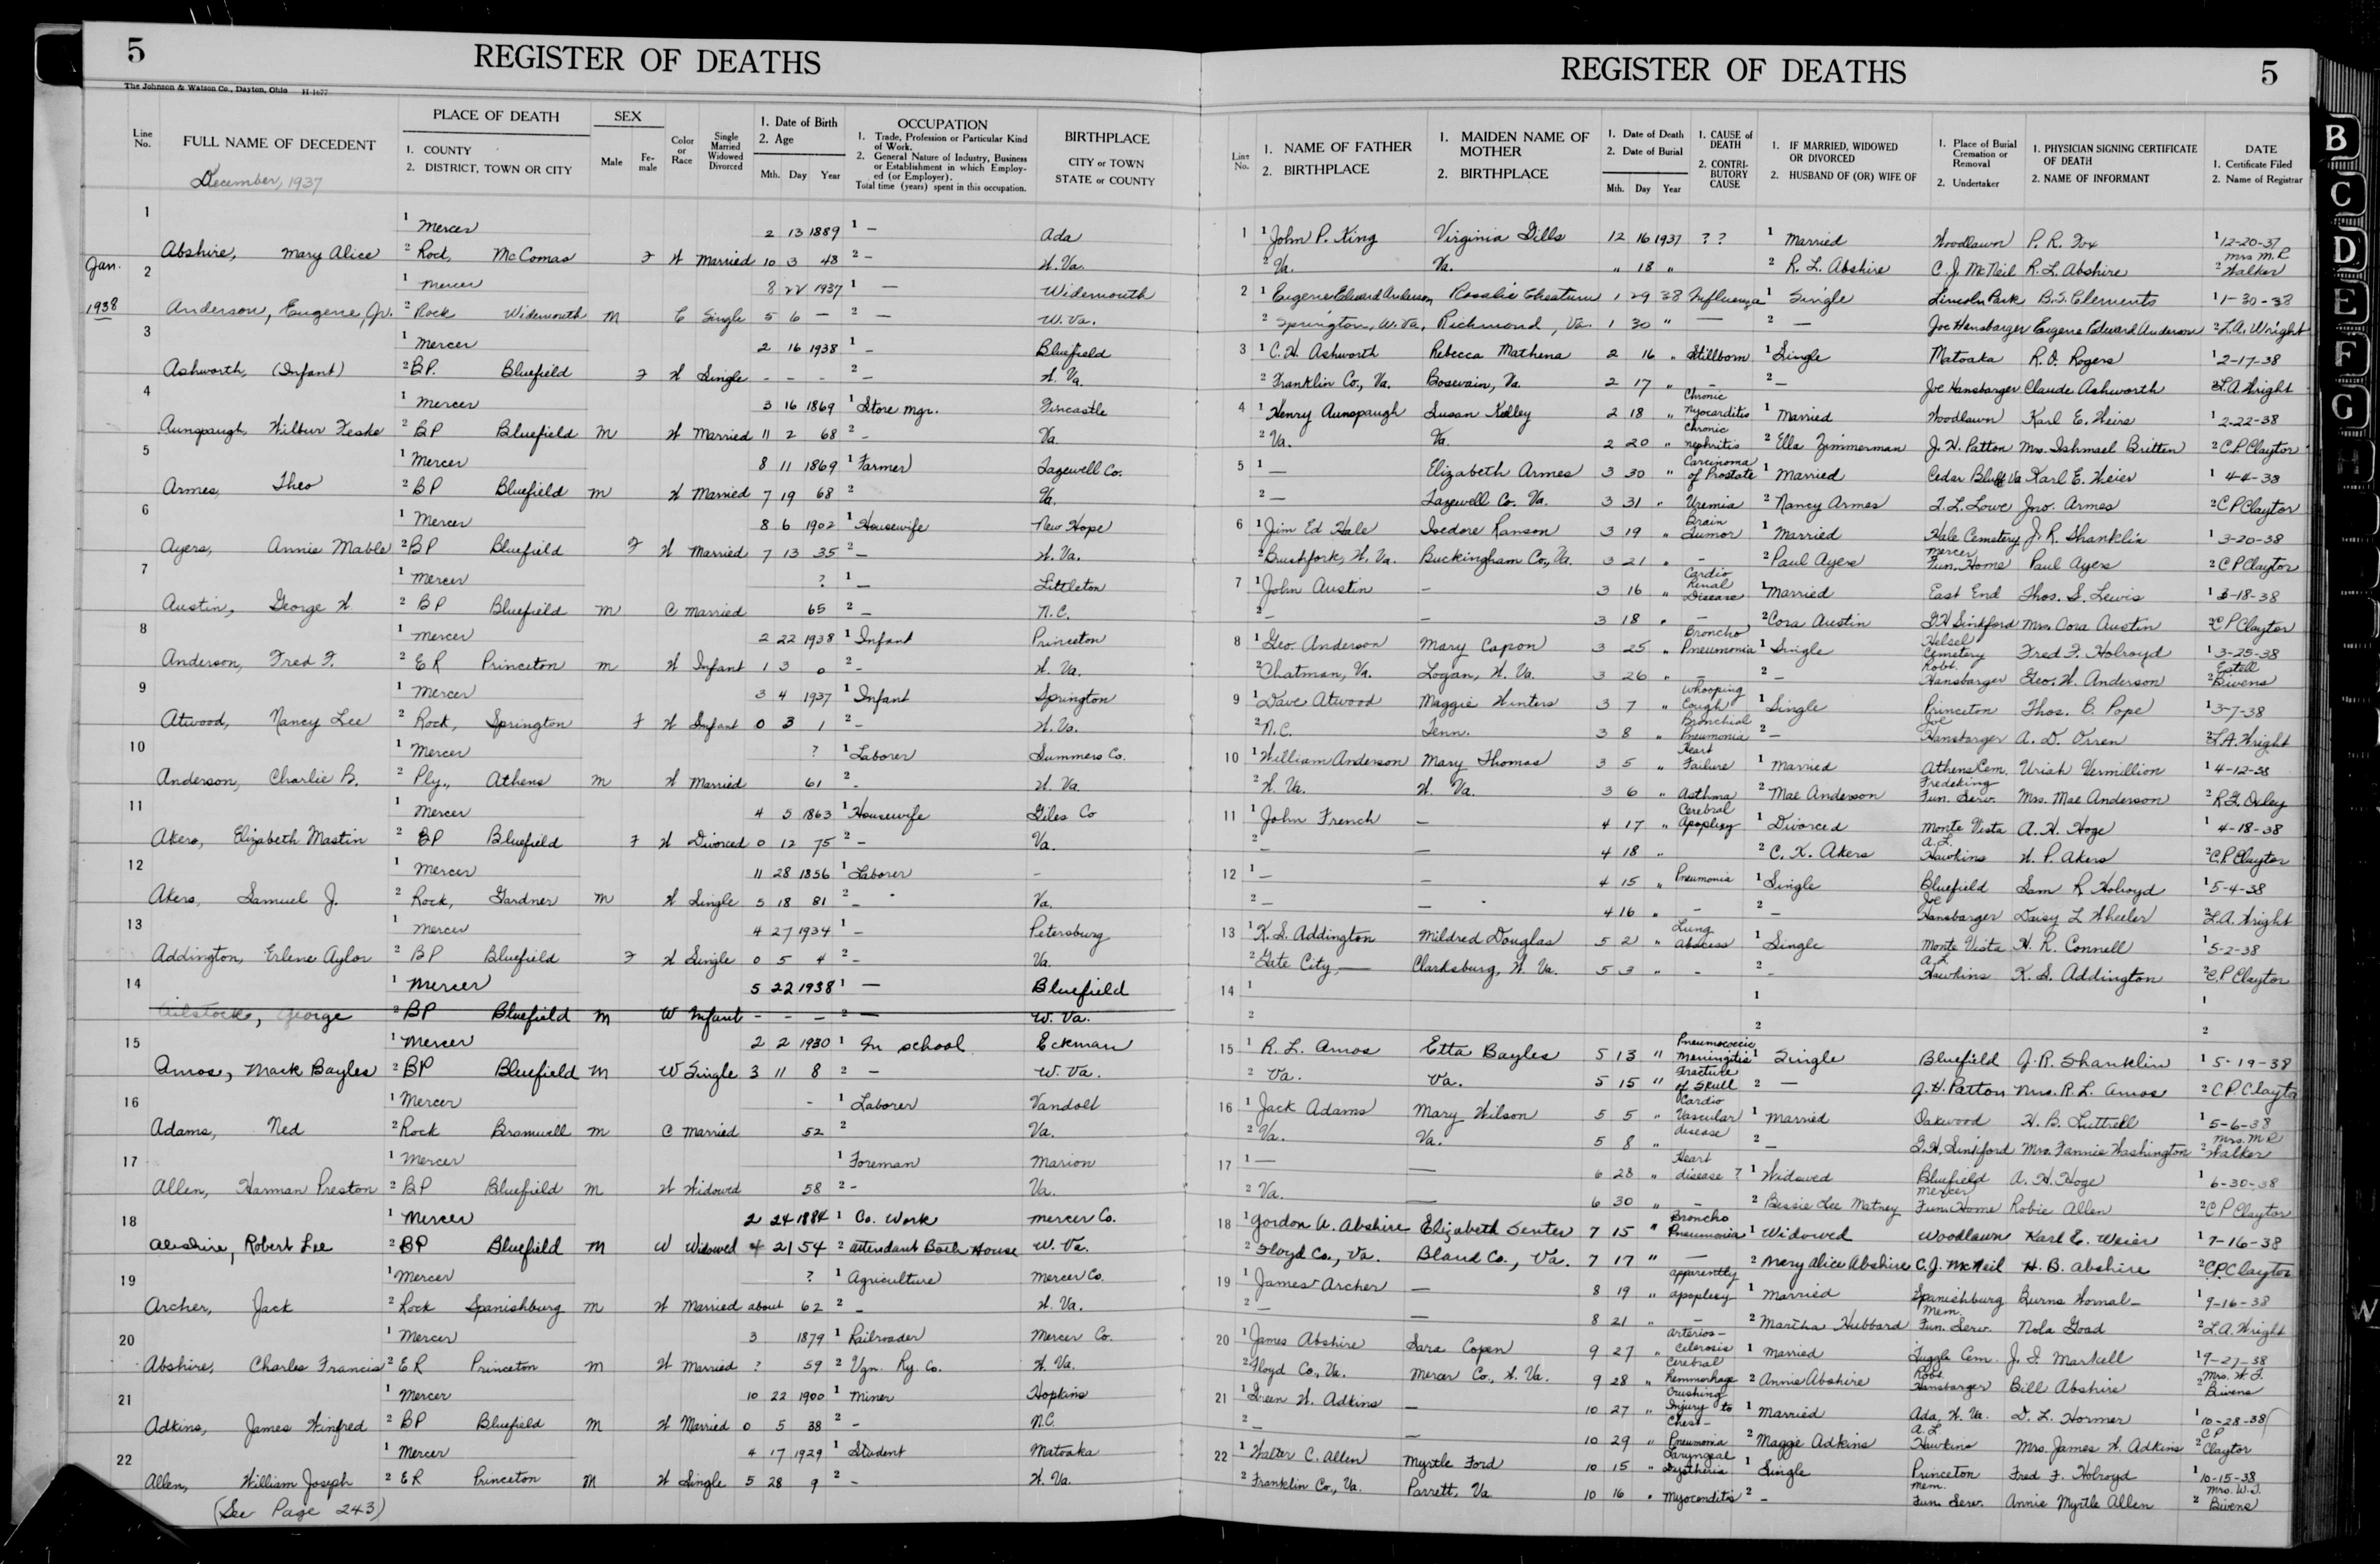 5 REGISTER OF DEATHS
The Johnson & Watson Co., Dayton, Ohio H-1677
Line No. FULL NAME OF DECEDENT PLACE OF DEATH 1. COUNTY 2. DISTRICT, TOWN OR CITY SEX Male Female Color or Race Single Married Widowed Divorced 1. Date of Birth 2. Age Mth. Day Year OCCUPATION 1. Trade, Profession or Particular Kind of Work. 2. General Nature of Industry, Business or Establishment in which Employed (or Employer). Total time (years) spent in this occupation. BIRTHPLACE CITY or TOWN STATE or COUNTY
December, 1937
1 1 Mercer 2 13 1889 1 — Ada
Abshire, Mary Alice 2 Rock, McComas F W Married 10 3 48 2 — W. Va.
Jan. 1938
2 1 Mercer 8 22 1937 1 — Widemouth
Anderson, Eugene, Jr. 2 Rock Widemouth M C Single 5 6 — 2 — W. Va.
3 1 Mercer 2 16 1938 1 — Bluefield
Ashworth, (Infant) 2 BP. Bluefield F W Single - - - 2 — W. Va.
4 1 Mercer 3 16 1869 1 Store Mgr. Fincastle
Aunspaugh, Wilbur Feske 2 BP Bluefield M W Married 11 2 68 2 - Va
5 1 Mercer 8 11 1869 1 Farmer Tazewell Co.
Armes, Theo 2 BP Bluefield M W Married 7 19 68 2 Va.
6 1 Mercer 8 6 1902 1 Housewife New Hope
Ayers, Annie Mable 2 BP Bluefield F W Married 7 13 35 2 — W. Va.
7 1 Mercer ? 1 — Littleton
Austin, George W. 2 BP Bluefield M C Married 65 2 — N.C.
8 1 Mercer 2 22 1938 1 Infant Princeton
Anderson, Fred F. 2 ER Princeton M W Infant 1 3 0 2 - W. Va.
9 1 Mercer 3 4 1937 1 Infant Springton
Atwood, Nancy Lee 2 Rock, Springton F W Infant 0 3 1 2 - W. Va.
10 1 Mercer ? 1 Laborer Summers Co.
Anderson, Charlie B. 2 Ply., Athens M W Married 61 2 - W. Va.
11 1 Mercer 4 5 1863 1 Housewife Giles Co
Akers, Elizabeth Mastin 2 BP Bluefield F W Divorced 0 12 75 2 - Va.
12 1 Mercer 11 28 1856 1 Laborer -
Akers, Samuel J. 2 Rock, Gardner M W Single 5 18 81 2 - Va.
13 1 Mercer 4 27 1934 1 - Petersburg
Addington, Erlene Aylor 2 BP Bluefield F W Single 0 5 4 2 - Va.
14 1 Mercer 5 22 1938 1 — Bluefield
Ailstock, George 2 BP Bluefield M W Infant - - - 2 — W. Va.
15 1 Mercer 2 2 1930 1 In school Eckman
Amos, Mack Bayles 2 BP Bluefield M W Single 3 11 8 2 — W. Va.
16 1 Mercer - 1 Laborer Vandolt
Adams, Ned 2 Rock Bramwell M C Married 52 2 Va.
17 1 Mercer 1 Foreman Marion
Allen, Harman Preston 2 BP Bluefield M W Widowed 58 2 - Va.
18 1 Mercer 2 24 1884 1 Co. Work Mercer Co.
Abshire, Robert Lee 2 BP Bluefield M W Widowed 4 21 54 2 Attendant Bath House W. Va.
19 1 Mercer ? 1 Agriculture Mercer Co.
Archer, Jack 2 Rock Spanishburg M W Married about 62 2 - W. Va.
20 1 Mercer 3 1879 1 Railroader Mercer Co.
Abshire, Charles Francis 2 ER Princeton M W Married ? 59 2 Vgn. Ry. Co. W. Va.
21 1 Mercer 10 22 1900 1 Miner Hopkins
Adkins, James Winfred 2 BP Bluefield M W Married 0 5 38 2 - N.C.
22 1 Mercer 4 17 1929 1 Student Matoaka
Allen, William Joseph 2 ER Princeton M W Single 5 28 9 2 - W. Va.
(See Page 243)
REGISTER OF DEATHS 5
Line No. 1. NAME OF FATHER 2. BIRTHPLACE 1. MAIDEN NAME OF MOTHER 2. BIRTHPLACE 1. Date of Death 2. Date of Burial Mth. Day Year 1. CAUSE of DEATH 2. CONTRIBUTORY CAUSE 1. IF MARRIED, WIDOWED OR DIVORCED 2. HUSBAND OF (OR) WIFE OF 1. Place of Burial Cremation or Removal 2. Undertaker 1. PHYSICIAN SIGNING CERTIFICATE OF DEATH 2. NAME OF INFORMANT DATE 1. Certificate Filed 2. Name of Registrar
1 1 John P. King Virginia Gills 12 16 1937 ? ? 1 Married Woodlawn P. R. Fox 1 12-20-37
2 Va. Va. " 18 " 2 R. L. Abshire C. J. McNeil R. L. Abshire 2 Mrs M. R Walker
2 1 Eugene Edward Anderson Rosalie Cheatum 1 29 38 Influenza 1 Single Lincoln Park B. S. Clements 1 1-30-38
2 Springton, W. Va, Richmond, Va. 1 30 " — 2 — Joe Hansbarger Eugene Edward Anderson 2 L. A. Wright
3 1 C. H. Ashworth Rebecca Mathena 2 16 " Stillborn 1 Single Matoaka R. O. Rogers 1 2-17-38
2 Franklin Co., Va. Bosevain, Va. 2 17 " - 2 — Joe Hansbarger Claude Ashworth 2 L. A. Wright
4 1 Henry Aunspaugh Susan Kelley 2 18 " Chronic Myocarditis 1 Married Woodlawn Karl E. Weirs 1 2-22-38
2 Va. Va. 2 20 " Chronic nephritis 2 Ella Zimmerman J. H. Patton Mrs. Ishmael Britten 2 C. P. Claytor
5 1 — Elizabeth Armes 3 30 " Carcinoma of Prostate 1 Married Cedar Bluff Va Karl E. Weier 1 4-4-38
2 — Tazewell Co. Va. 3 31 " Uremia 2 Nancy Armes T. L. Lowe Jno. Armes 2 C P Claytor
6 1 Jim Ed Hale Isedore Ranson 3 19 " Brain Tumor 1 Married Hale Cemetery J. R. Shanklin 1 3-20-38
2 Brushfork, W. Va. Buckingham Co., Va. 3 21 " - 2 Paul Ayers Mercer Fun. Home Paul Ayers 2 C P Claytor
7 1 John Austin - 3 16 " Cardio Renal Disease 1 Married East End Thos. S. Lewis 1 3-18-38
2 - - 3 18 " - 2 Cora Austin G. H. Sinkford Mrs. Cora Austin 2 C P Claytor
8 1 Geo. Anderson Mary Capon 3 25 " Broncho Pneumonia 1 Single Helsel Cemetery Fred F. Holroyd 1 3-25-38
2 Chatman, Va. Logan, W. Va. 3 26 " - 2 - Robt. Hansbarger Geo. W. Anderson 2 Estell Bivens
9 1 Dave Atwood Maggie Winters 3 7 " Whooping Cough 1 Single Princeton Thos. B. Pope 1 3-7-38
2 N.C. Tenn. 3 8 " Bronchial Pneumonia 2 - Joe Hansbarger A. D. Orren 2 L. A. Wright
10 1 William Anderson Mary Thomas 3 5 " Heart Failure 1 Married Athens Cem. Uriah Vermillion 1 4-12-38
2 W. Va. W. Va. 3 6 " Asthma 2 Mae Anderson Fredeking Fun. Serv. Mrs. Mae Anderson 2 R. G. Oxley
11 1 John French - 4 17 " Cerebral Apoplexy 1 Divorced Monte Vista A. H. Hoge 1 4-18-38
2 - - 4 18 " 2 C. K. Akers A. L. Hawkins W. P. Akers 2 C. P. Claytor
12 1 - - 4 15 " Pneumonia 1 Single Bluefield Sam R Holroyd 1 5-4-38
2 - - 4 16 " - 2 - Joe Hansbarger Daisy L Wheeler 2 L. A. Wright
13 1 K. S. Addington Mildred Douglas 5 2 " Lung abscess 1 Single Monte Vista H. R. Connell 1 5-2-38
2 Gate City, — Clarksburg, W. Va. 5 3 " - 2 - A. L Hawkins K. S. Addington 2 C. P Claytor
14 1 1 1
2 2 2
15 1 R. L. Amos Etta Bayles 5 13 " Pneumococcic Meningitis 1 Single Bluefield J. R. Shanklin 1 5-19-38
2 Va. Va. 5 15 " Fracture of Skull 2 — J. H. Patton Mrs. R. L. Amos 2 C. P. Clayto
16 1 Jack Adams Mary Wilson 5 5 " Cardio Vascular disease 1 Married Oakwood H. B. Luttrell 1 5-6-38
2 Va. Va. 5 8 " 2 - G. H. Sinkford Mrs. Fannie Washington 2 Mrs. M R Walker
17 1 — — 6 28 " Heart disease ? 1 Widowed Bluefield A. H. Hoge 1 6-30-38
2 Va. — 6 30 " - 2 Bessie Lee Matney Mercer Fun. Home Robie Allen 2 C P Claytor
18 1 Gordon A. Abshire Elizabeth Senter 7 15 " Broncho Pneumonia 1 Widowed Woodlawn Karl E. Weier 1 7-16-38
2 Floyd Co., Va. Bland Co., Va. 7 17 " — 2 Mary Alice Abshire C. J. McNeil H. B. Abshire 2 C. P. Claytor
19 1 James Archer — 8 19 " apparently apoplexy 1 Married Spanishburg Burns Wornal- 1 9-16-38
2 — — 8 21 " - 2 Martha Hubbard Mem. Fun. Serv. Nola Goad 2 L. A. Wright
20 1 James Abshire Sara Copen 9 27 " arterios-celerosis 1 Married Tuggle Cem. J. I. Markell 1 9-27-38
2 Floyd Co., Va. Mercer Co., W. Va. 9 28 " Cerebral Hemmorhage 2 Annie Abshire Robt. Hansbarger Bill Abshire 2 Mrs. W. T. Bivens
21 1 Green W. Adkins — 10 27 " Crushing Injury to Chest- 1 Married Ada, W. Va. D. L. Hormer 1 10-28-38
2 — — 10 29 " Pneumonia 2 Maggie Adkins A. L Hawkins Mrs. James W. Adkins 2 C P Claytor
22 1 Walter C. Allen Myrtle Ford 10 15 " Laryngeal Dyptheria 1 Single Princeton Fred F. Holroyd 1 10-15-38
2 Franklin Co., Va. Parrett, Va. 10 16 " Myocarditis 2 - Mem. Fun. Serv. Annie Myrtle Allen 2 Mrs. W. T. Bivens
B
C
D
E
F
G
H
W